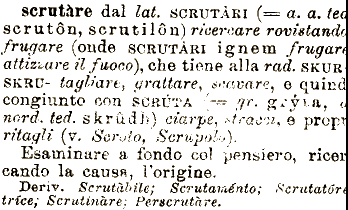 scrutàre dal lat. SCRUTÀRI (= a. a. ted
scrutôn, scrutilôn) ricercare rovistando
frugare (onde SCRUTÀRI ignem frugare
attizzare il fuoco), che tiene alla rad. SKUR-
SKRU- tagliare, grattare, scavare, e quind
congiunto con SCRÚTA (= gr. grýta,
nord. ted. skrûdh) ciarpe, stracci, e propr
ritagli (v. Scroto, Scrupolo).
Esaminare a fondo col pensiero, ricer
cando la causa, l'origine.
Deriv. Scrutàbile; Scrutaménto; Scrutatóre
trice; Scrutinàre; Perscrutàre.